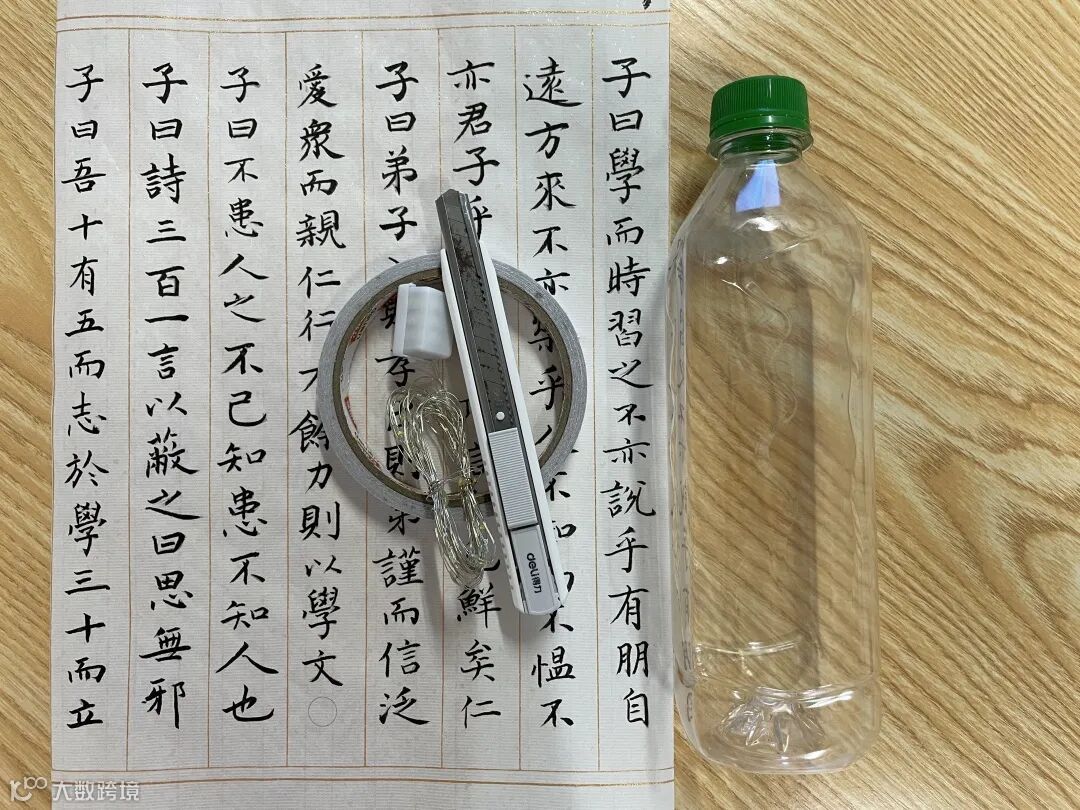 子曰學而時習之不亦說乎有朋自
遠方來不亦樂乎不知不慍不
亦君子乎鮮矣仁
子曰弟子則謹而信泛
愛衆而親仁餘力則以學文
子曰不患人之不己知患不知人也
子曰詩三百一言以蔽之曰思無邪
子曰吾十有五而志於學三十而立
deli得力
大数跨境